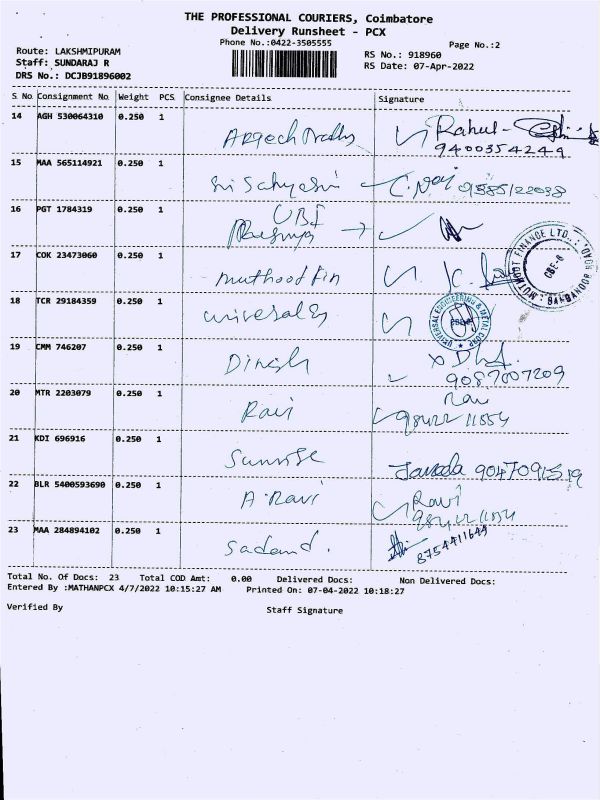 THE PROFESSIONAL COURIERS, Coimbatore
Delivery Runsheet - PCX
Phone No.:0422-3505555
Page No.:2
Route: LAKSHMIPURAM
Staff: SUNDARAJ R
DRS No.: DCJB91896002
RS No.: 918960
RS Date: 07-Apr-2022
S No Consignment No Weight PCS Consignee Details Signature
14 AGH 530064310 0.250 1 Rahul
9400354249
15 MAA 565114921 0.250 1 Sri
16 PGT 1784319 0.250 1 UBI
17 COK 23473060 0.250 1 muthoot fin
MUTHOOT FINANCE LTD.
CBE-8
18 TCR 29184359 0.250 1 universal
UNIVERSAL ENGINEERING & METAL CORP
19 CMM 746207 0.250 1 Dinesh
9087007209
20 MTR 2203079 0.250 1 Ravi Ravi
21 KDI 696916 0.250 1 Sunrise
22 BLR 5400593690 0.250 1 A. Ravi Ravi
23 MAA 284894102 0.250 1
8754411644
Total No. Of Docs: 23 Total COD Amt: 0.00 Delivered Docs: Non Delivered Docs:
Entered By :MATHANPCX 4/7/2022 10:15:27 AM Printed On: 07-04-2022 10:18:27
Verified By Staff Signature